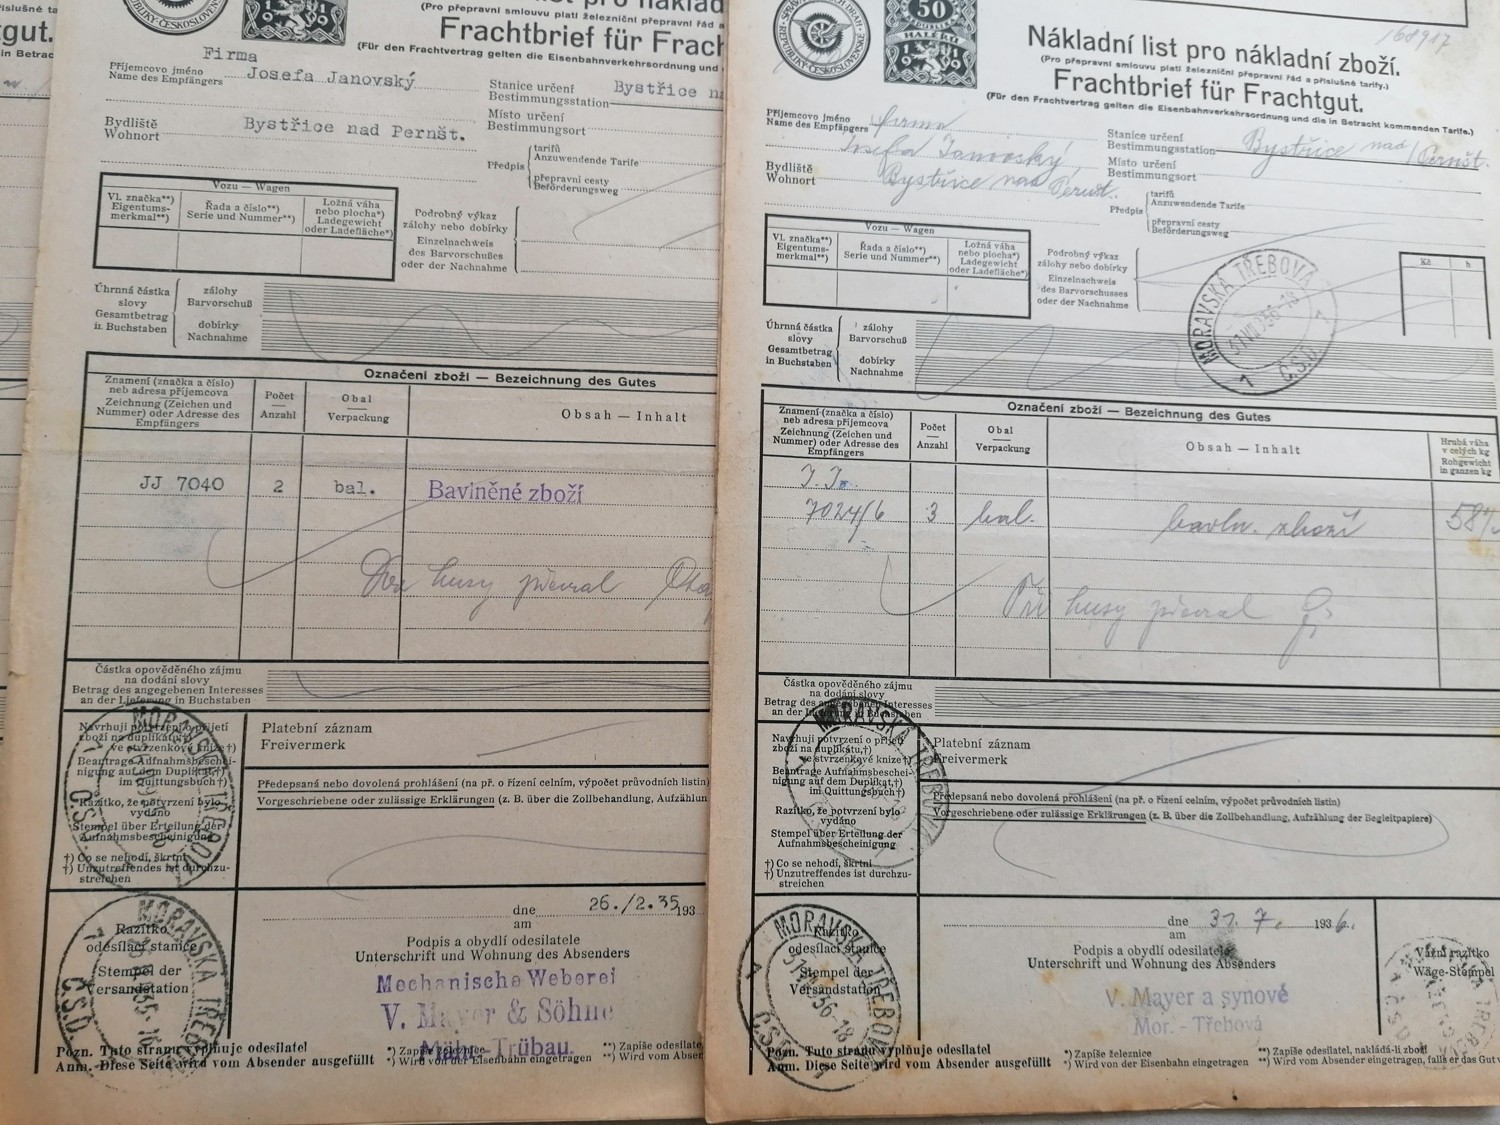 íslušné ta
gut.
in Betrac
REPUBLIKY ČESKOSLOVENSKÉ
1919
(Pro přepravní smlouvu platí železniční přepravní řád a
Frachtbrief für Frach
(Für den Frachtvertrag gelten die Eisenbahnverkehrsordnung und
Firma
Příjemcovo jméno
Name des Empfängers
Josefa Janovský
Stanice určení
Bestimmungsstation
Bystřice n
Místo určení
Bestimmungsort
Bydliště
Wohnort
Bystřice nad Pernšt.
Předpis
tarifů
Anzuwendende Tarife
přepravní cesty
Beförderungsweg
Vozu — Wagen
Vl. značka**)
Eigentums-
merkmal**)
Řada a číslo**)
Serie und Nummer**)
Ložná váha
nebo plocha*)
Ladegewicht
oder Ladefläche*)
Podrobný výkaz
zálohy nebo dobírky
Einzelnachweis
des Barvorschußes
oder der Nachnahme
Úhrnná částka
slovy
Gesamtbetrag
in Buchstaben
zálohy
Barvorschuß
dobírky
Nachnahme
Označení zboží — Bezeichnung des Gutes
Znamení (značka a číslo)
neb adresa příjemcova
Zeichnung (Zeichen und
Nummer) oder Adresse des
Empfängers
Počet
Anzahl
Obal
Verpackung
Obsah — Inhalt
JJ 7040
2
bal.
Bavlněné zboží
Dva kusy převzal
Částka opověděného zájmu
na dodání slovy
Betrag des angegebenen Interesses
an der Lieferung in Buchstaben
Navrhuji potvrzení o přijetí
zboží na duplikátu,†)
ve stvrzenkové knize†)
Beantrage Aufnahmsbeschei-
nigung auf dem Duplikat,†)
im Quittungsbuch†)
Razítko, že potvrzení bylo
vydáno
Stempel über Erteilung der
Aufnahmsbescheinigung
†) Co se nehodí, škrtni
†) Unzutreffendes ist durchzu-
streichen
MORAVSKÁ TŘEBOVÁ
1
Č.S.D.
Platební záznam
Freivermerk
Předepsaná nebo dovolená prohlášení (na př. o řízení celním, výpočet průvodních listin)
Vorgeschriebene oder zulässige Erklärungen (z. B. über die Zollbehandlung, Aufzählun
Razítko
odesílací stanice
Stempel der
Versandstation
MORAVSKÁ TŘEBOVÁ
1
Č.S.D.
dne
am
26./2.35
193
Podpis a obydlí odesilatele
Unterschrift und Wohnung des Absenders
Mechanische Weberei
V. Mayer & Söhne
Mähr.-Trübau.
Pozn. Tuto stranu vyplňuje odesilatel
Anm. Diese Seite wird vom Absender ausgefüllt
*) Zapíše železnice
*) Wird von der Eisenbahn eingetragen
**) Zapíše odesilate
**) Wird vom Abser
REPUBLIKY ČESKOSLOVENSKÉ
50
HALÉŘŮ
1919
168917
Nákladní list pro nákladní zboží.
(Pro přepravní smlouvu platí železniční přepravní řád a příslušné tarify.)
Frachtbrief für Frachtgut.
(Für den Frachtvertrag gelten die Eisenbahnverkehrsordnung und die in Betracht kommenden Tarife.)
Příjemcovo jméno
Name des Empfängers
firma
Josefa Janovský
Stanice určení
Bestimmungsstation
Bystřice nad Pernšt.
Místo určení
Bestimmungsort
Bydliště
Wohnort
Bystřice nad Pernšt.
Předpis
tarifů
Anzuwendende Tarife
přepravní cesty
Beförderungsweg
Vozu — Wagen
Vl. značka**)
Eigentums-
merkmal**)
Řada a číslo**)
Serie und Nummer**)
Ložná váha
nebo plocha*)
Ladegewicht
oder Ladefläche*)
Podrobný výkaz
zálohy nebo dobírky
Einzelnachweis
des Barvorschusses
oder der Nachnahme
Kč
h
MORAVSKÁ TŘEBOVÁ
31.VII.936-18
1
Č.S.D.
Úhrnná částka
slovy
Gesamtbetrag
in Buchstaben
zálohy
Barvorschuß
dobírky
Nachnahme
Označení zboží — Bezeichnung des Gutes
Znamení (značka a číslo)
neb adresa příjemcova
Zeichnung (Zeichen und
Nummer) oder Adresse des
Empfängers
Počet
Anzahl
Obal
Verpackung
Obsah — Inhalt
Hrubá váha
v celých kg
Rohgewicht
in ganzen kg
J.J.
7024/6
3
bal.
bavln. zboží
584
Tři kusy převzal
Částka opověděného zájmu
na dodání slovy
Betrag des angegebenen Interesses
an der Lieferung in Buchstaben
Navrhuji potvrzení o přijetí
zboží na duplikátu,†)
ve stvrzenkové knize†)
Beantrage Aufnahmsbeschei-
nigung auf dem Duplikat,†)
im Quittungsbuch†)
Razítko, že potvrzení bylo
vydáno
Stempel über Erteilung der
Aufnahmsbescheinigung
†) Co se nehodí, škrtni
†) Unzutreffendes ist durchzu-
streichen
MORAVSKÁ TŘEBOVÁ
Platební záznam
Freivermerk
Předepsaná nebo dovolená prohlášení (na př. o řízení celním, výpočet průvodních listin)
Vorgeschriebene oder zulässige Erklärungen (z. B. über die Zollbehandlung, Aufzählung der Begleitpapiere)
Razítko
odesílací stanice
Stempel der
Versandstation
MORAVSKÁ TŘEBOVÁ
1
Č.S.D.
dne
am
31. 7. 1936.
Podpis a obydlí odesilatele
Unterschrift und Wohnung des Absenders
V. Mayer a synové
Mor. - Třebová
Vážní razítko
Wäge-Stempel
Pozn. Tuto stranu vyplňuje odesilatel
Anm. Diese Seite wird vom Absender ausgefüllt
*) Zapíše železnice
*) Wird von der Eisenbahn eingetragen
**) Zapíše odesilatel, nakládá-li zboží
**) Wird vom Absender eingetragen, falls er das Gut